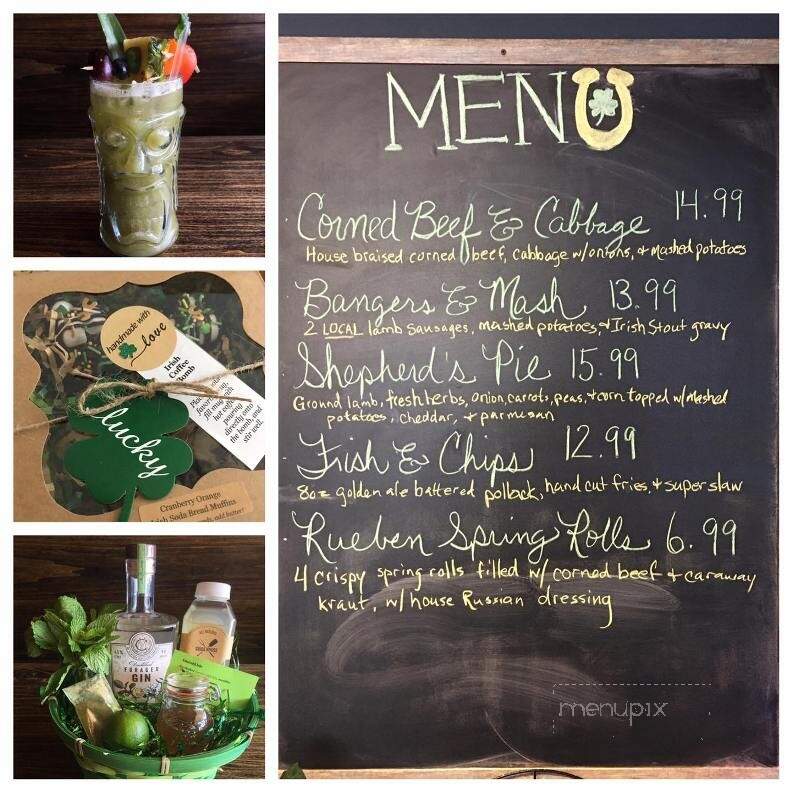 MENU
Corned Beef & Cabbage 14.99
House braised corned beef, cabbage w/onions, & mashed potatoes
Bangers & Mash 13.99
2 LOCAL lamb sausages, mashed potatoes, & Irish Stout gravy
Shepherd's Pie 15.99
Ground lamb, fresh herbs, onion, carrots, peas, & corn topped w/mashed
potatoes, cheddar, & parmesan
Fish & Chips 12.99
8oz golden ale battered pollock, hand cut fries, & super slaw
Rueben Spring Rolls 6.99
4 crispy spring rolls filled w/ corned beef & caraway
kraut, w/ house Russian dressing
menupix
handmade with
love
Irish
Coffee
Bomb
fill mug with
hot coffee
pouring
directly onto
the bomb, and
stir well.
lucky
Cranberry Orange
Irish Soda Bread Muffins
FORAGER
GIN